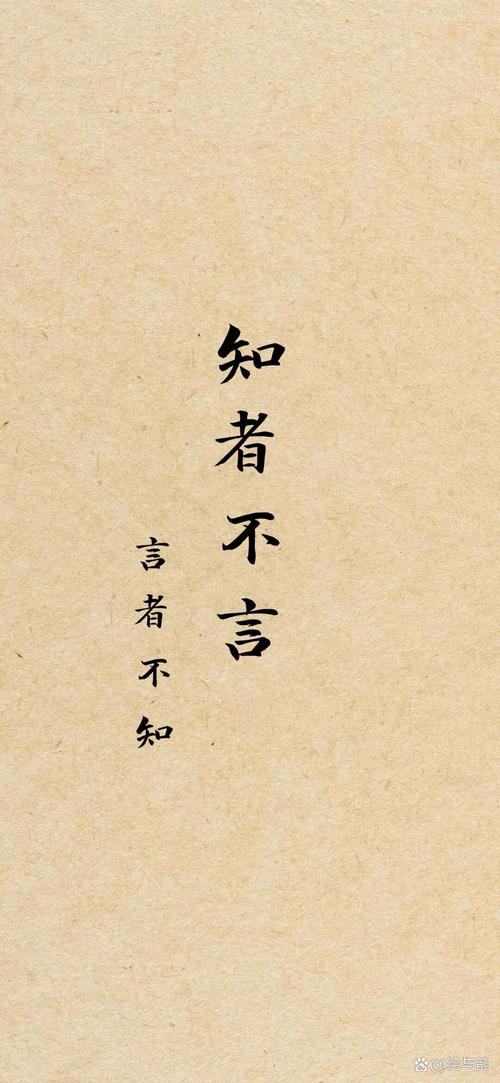 知者不言
言者不知
@绘与韵